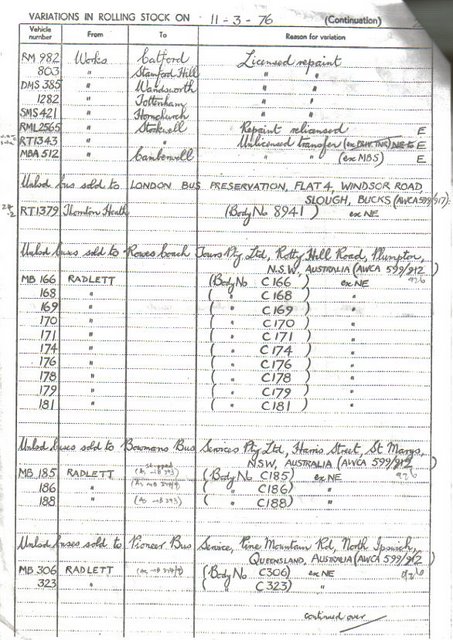 VARIATIONS IN ROLLING STOCK ON 11-3-76 (Continuation)
Vehicle number From To Reason for variation
RM 982 Works Catford Licensed repaint
803 " Stamford Hill " "
DMS 385 " Wandsworth " "
1282 " Tottenham " "
SMS 421 " Hornchurch " "
RML2565 " Stockwell Repaint relicensed E
RT1343 " " Unlicensed transfer E
MBA 512 " Camberwell " " (ex MBS) E
Unlcd bus sold to LONDON BUS PRESERVATION, FLAT 4, WINDSOR ROAD
SLOUGH, BUCKS (AWCA 599/917).
RT1379 Thornton Heath (Body No 8941) ex NE
Unlcd buses sold to Rowes Coach Tours Pty Ltd, Rotty Hill Road, Plumpton,
N.S.W, AUSTRALIA (AWCA 599/912
926
MB 166 RADLETT (Body No C166 ) ex NE
168 " ( " C168 ) "
169 " ( " C169 ) "
170 " ( " C170 ) "
171 " ( " C171 ) "
174 " ( " C174 ) "
176 " ( " C176 ) "
178 " ( " C178 ) "
179 " ( " C179 ) "
181 " ( " C181 ) "
Unlcd buses sold to Bowmans Bus Services Pty Ltd, Harris Street, St Marys,
NSW, AUSTRALIA (AWCA 599/912
926
shipped
MB 185 RADLETT (Body No C185) ex NE
186 " ( " C186) "
188 " ( " C188) "
Unlcd buses sold to Pioneer Bus Service, Pine Mountain Rd, North Ipswich,
QUEENSLAND, AUSTRALIA (AWCA 599/912
MB 306 RADLETT (Body No C306) ex NE
323 " ( " C323) "
continued over